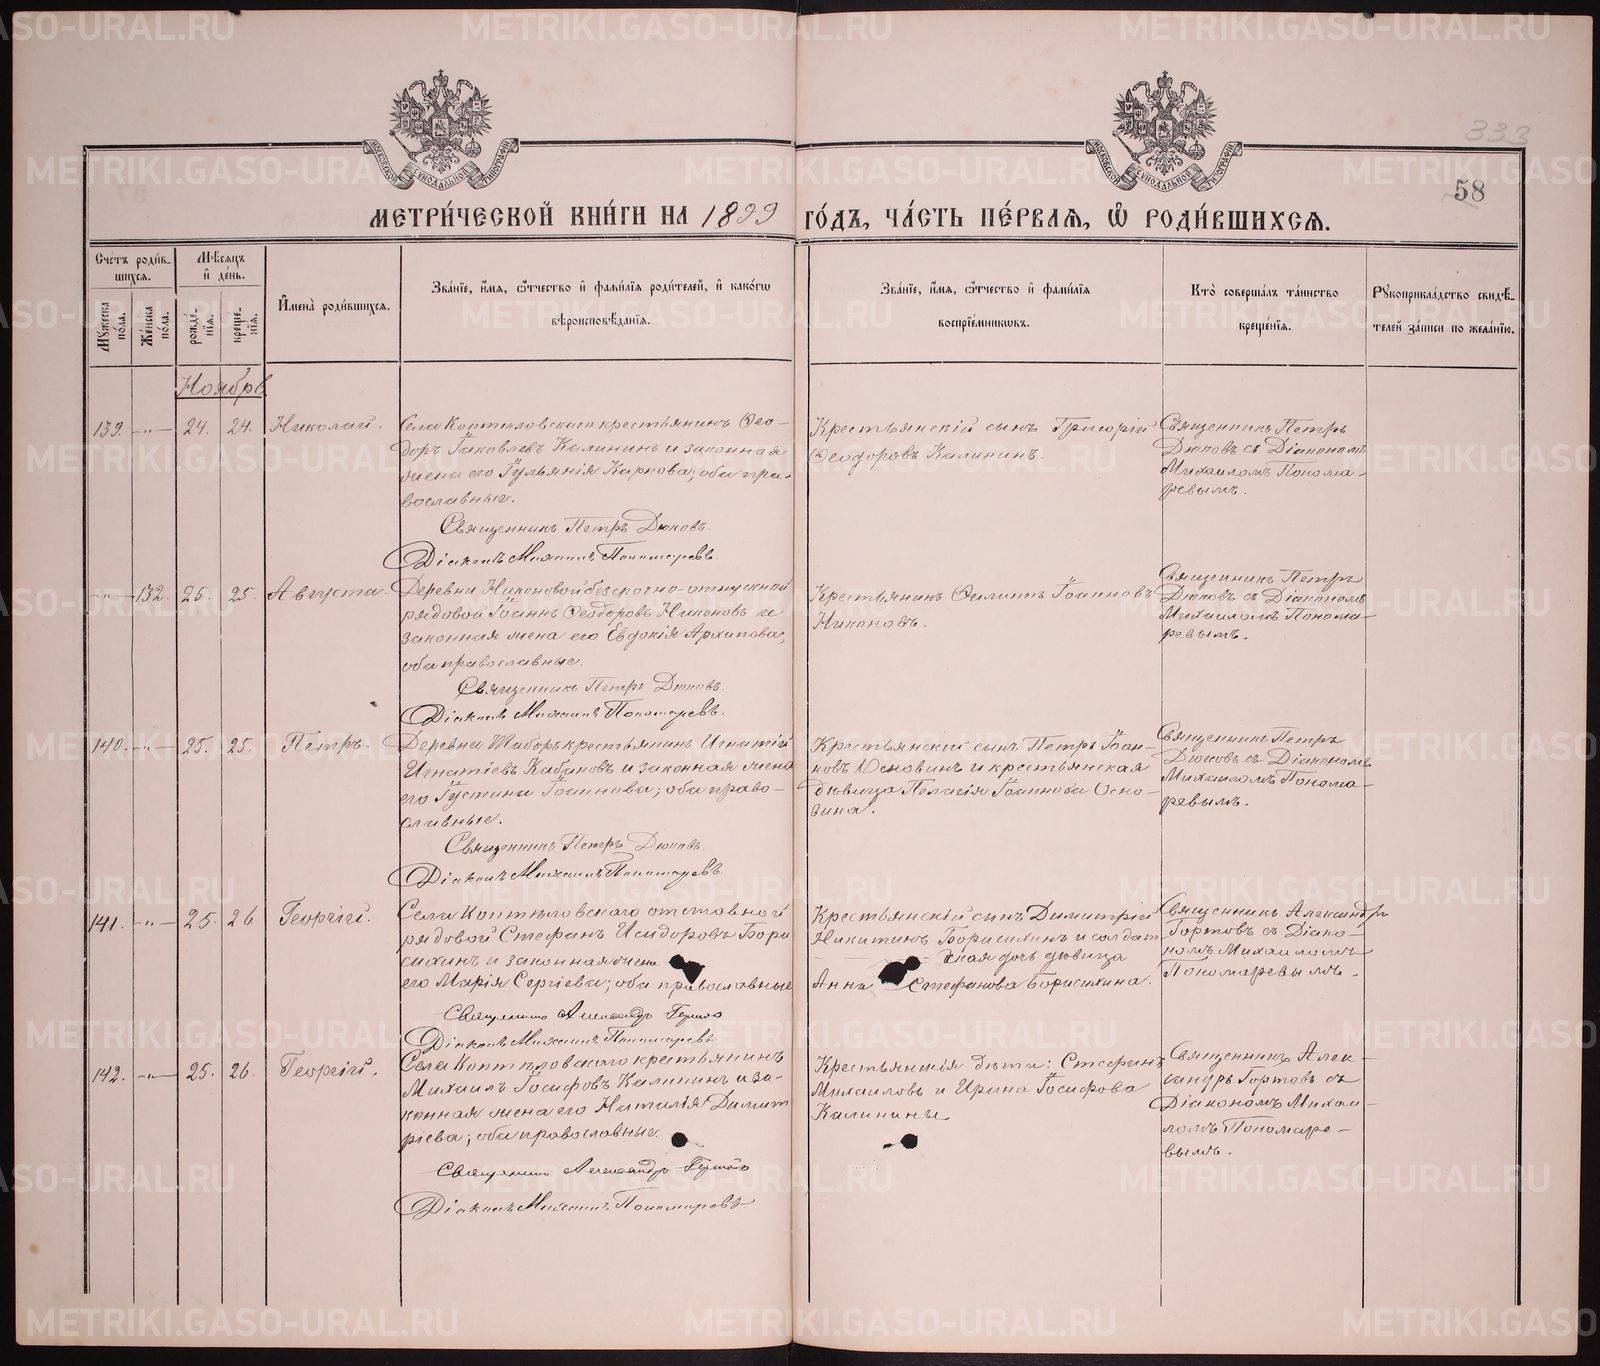 333
58
МЕТРИ́ЧЕСКОЙ КНИ́ГИ НА 1899 ГО́ДЪ, ЧА́СТЬ ПЕ́РВАѦ, Ѡ҆ РОДИ́ВШИХСѦ.
Сче́тъ роди́в-
шихсѧ.
Мꙋ́жеска по́ла.
Же́нска по́ла.
Мѣ́сѧцъ и҆ де́нь.
рожде́-
нїѧ.
креще́-
нїѧ.
И҆мена̀ роди́вшихсѧ.
Зва́нїе, и҆́мѧ, ѻ҆́тчество и҆ фамѝлїѧ роди́телей, и҆ како́гѡ
вѣроисповѣ́данїѧ.
Зва́нїе, и҆́мѧ, ѻ҆́тчество и҆ фамѝлїѧ
воспрїе́мникѡвъ.
Кто̀ соверша́лъ та́инство
креще́нїѧ.
Рꙋкоприкла́дство свидѣ́-
телей за́писи по жела́нїю.
Ноябрь
139. -„- 24. 24. Николай.
Села Коптѣловскаго крестьянинъ Ѳео-
доръ Іаковлевъ Калининъ и законная
жена его Іульянія Карпова; оба пра-
вославные.
Священникъ Петръ Дюковъ.
Діаконъ Михаилъ Пономаревъ.
Крестьянскій сынъ Григорій
Ѳеодоровъ Калининъ.
Священникъ Петръ
Дюковъ съ Діакономъ
Михаиломъ Понома-
ревымъ.
-„- 132. 25. 25. Августа.
Деревни Никоновой безсрочно-отпускной
рядовой Іоаннъ Ѳеодоровъ Никоновъ и
законная жена его Евдокія Архипова;
оба православные.
Священникъ Петръ Дюковъ.
Діаконъ Михаилъ Пономаревъ.
Крестьянинъ Филиппъ Іоанновъ
Никоновъ.
Священникъ Петръ
Дюковъ съ Діакономъ
Михаиломъ Понома-
ревымъ.
140. -„- 25. 25. Петръ.
Деревни Таборъ крестьянинъ Игнатій
Игнатіевъ Кабаковъ и законная жена
его Іустина Іоаннова; оба право-
славные.
Священникъ Петръ Дюковъ.
Діаконъ Михаилъ Пономаревъ.
Крестьянскій сынъ Петръ Іоан-
новъ Основинъ и крестьянская
дѣвица Пелагія Іоаннова Осно-
вина.
Священникъ Петръ
Дюковъ съ Діакономъ
Михаиломъ Понома-
ревымъ.
141. -„- 25. 26 Георгій.
Села Коптѣловскаго отставной
рядовой Стефанъ Исидоровъ Бори
сихинъ и законная жена
его Марія Сергіева; оба православные
Священникъ Александръ Гортовъ
Діаконъ Михаилъ Пономаревъ
Крестьянскій сынъ Димитрій
Никитинъ Борисихинъ и солдат
ская дочь дѣвица
Анна Стефанова Борисихина.
Священникъ Александръ
Гортовъ съ Діако-
номъ Михаиломъ
Пономаревымъ.
142. -„- 25. 26. Георгій.
Села Коптѣловскаго крестьянинъ
Михаилъ Іосифовъ Калининъ и за-
конная жена его Наталія Димит
ріева; оба православные.
Священникъ Александръ Гортовъ
Діаконъ Михаилъ Пономаревъ
Крестьянскія дѣти: Стефанъ
Михаиловъ и Ирина Іосифова
Калинины
Священникъ Алек-
сандръ Гортовъ съ
Діакономъ Михаи-
ломъ Пономаре-
вымъ.
METRIKI.GASO-URAL.RU